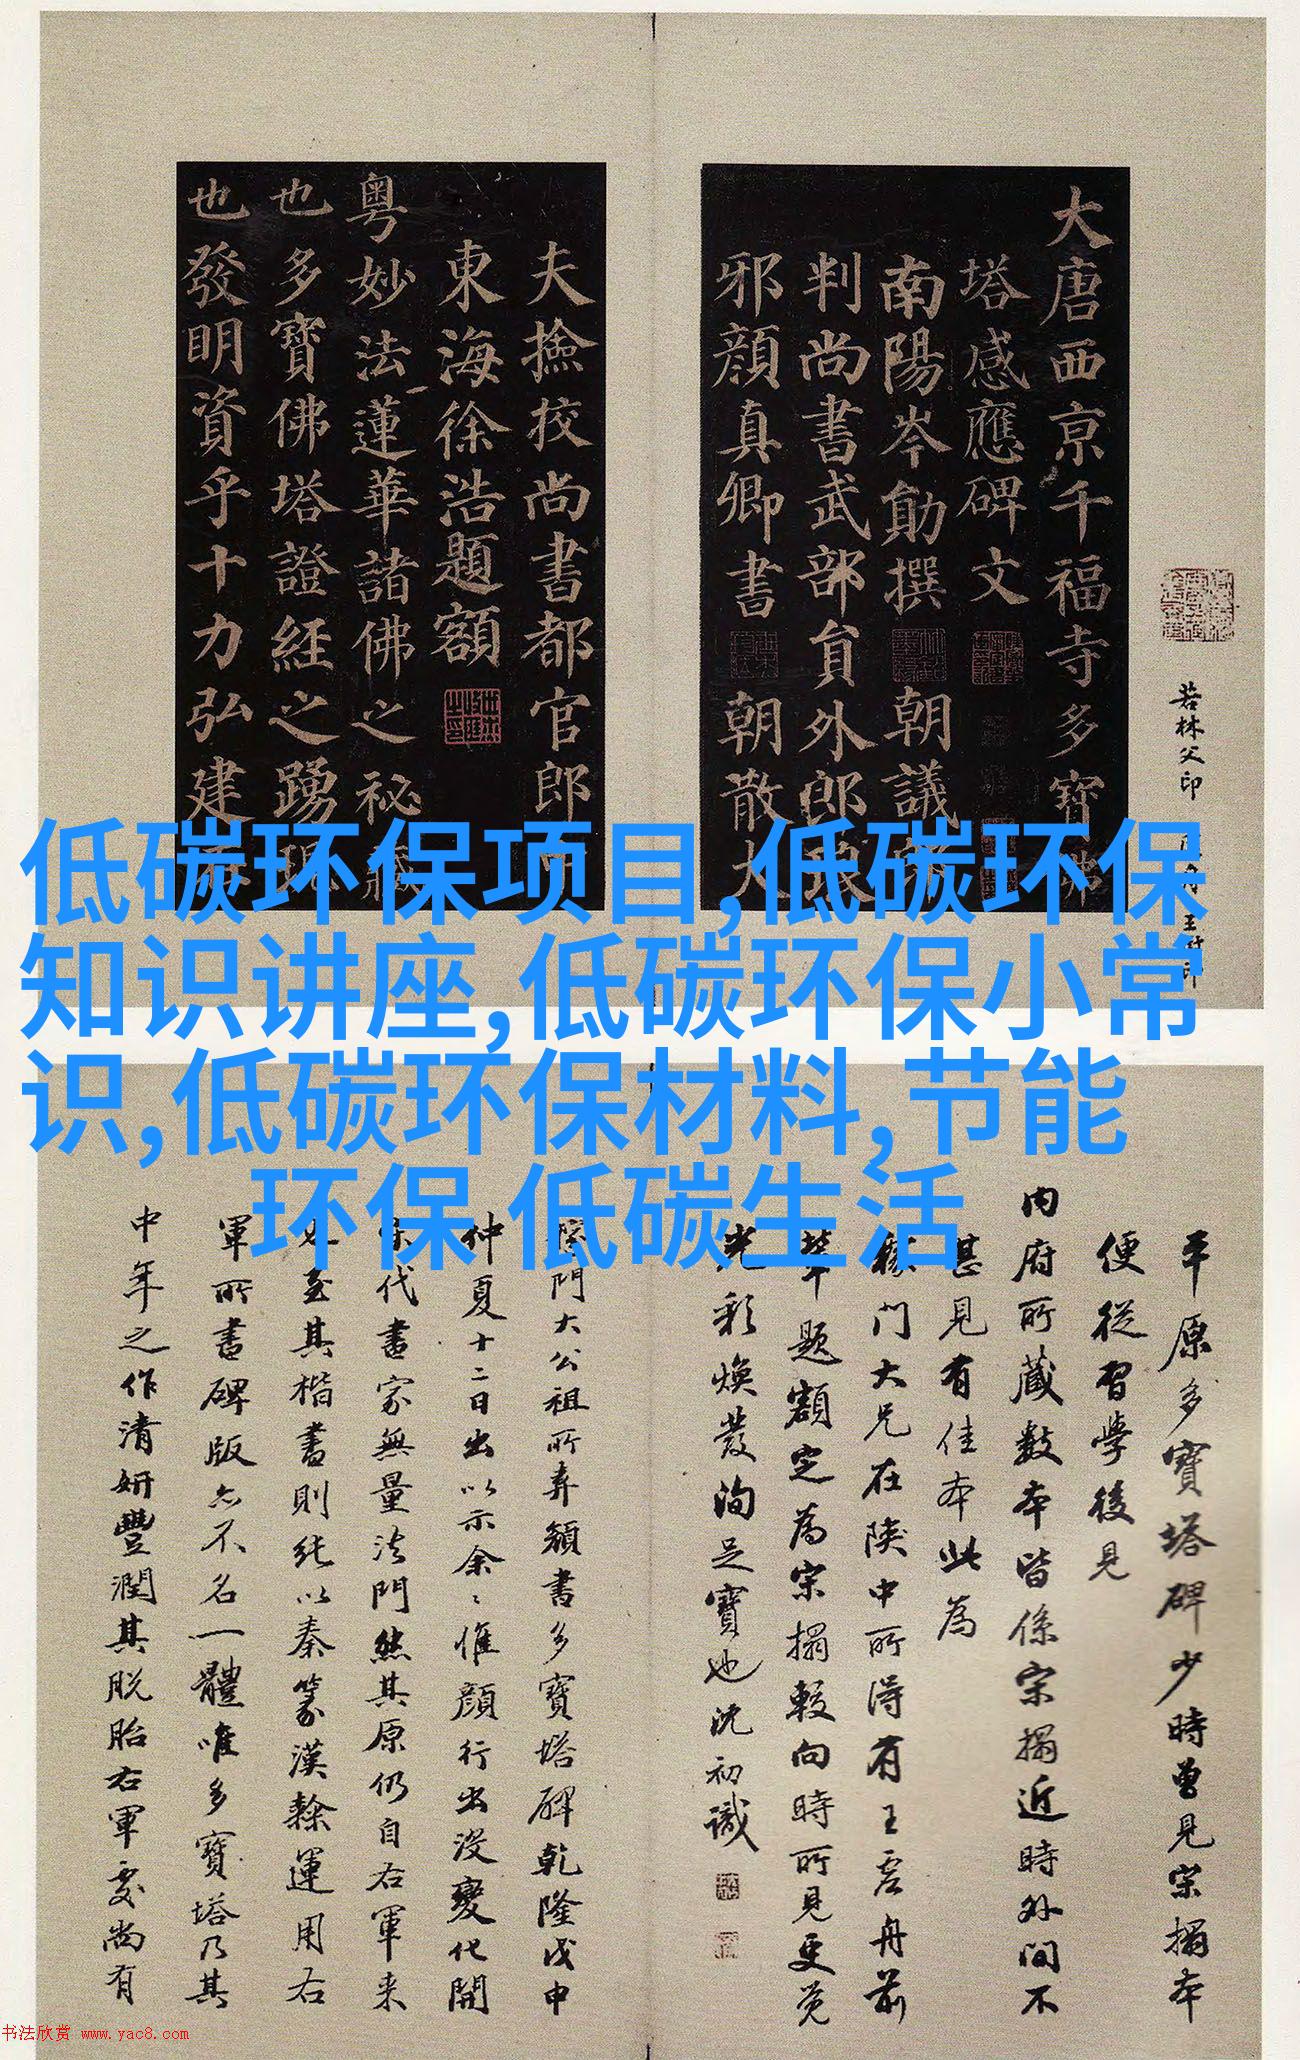 大唐西京千福寺多寶佛
塔感應碑文
南陽岑勛撰 朝議
判尚書武部員外郎琅
邪顏真卿書 朝散大
夫撿挍尚書都官郎
東海徐浩題額
粵妙法蓮華諸佛之祕
也多寶佛塔證經之踴現
也發明資乎十力弘建
若林父印
低碳环保项目,低碳环保
知识讲座,低碳环保小常
识,低碳环保材料,节能
环保,低碳生活
平原多寶塔碑少時曾見宗搨本
便從習學後見
內府所藏數本皆係宗搨近時外間不
甚見有佳本此為
稼門大兄在陝中所得有王虛舟前
輩題額定為宗搨較向時所見更覓
光彩煥發洵足寶也沈初識
稼門大公祖所弆顏書多寶塔碑乾隆戊申
仲夏十二日出以示余〻惟顏行出沒變化開
宋代書家無量法門然其原仍自右軍来
也至其楷書則純以秦篆漢隸運用右
軍所書碑版亦不名一體唯多寶塔乃其
中年之作清妍豐潤其脫胎右軍處尚有
书法欣赏 www.yac8.com